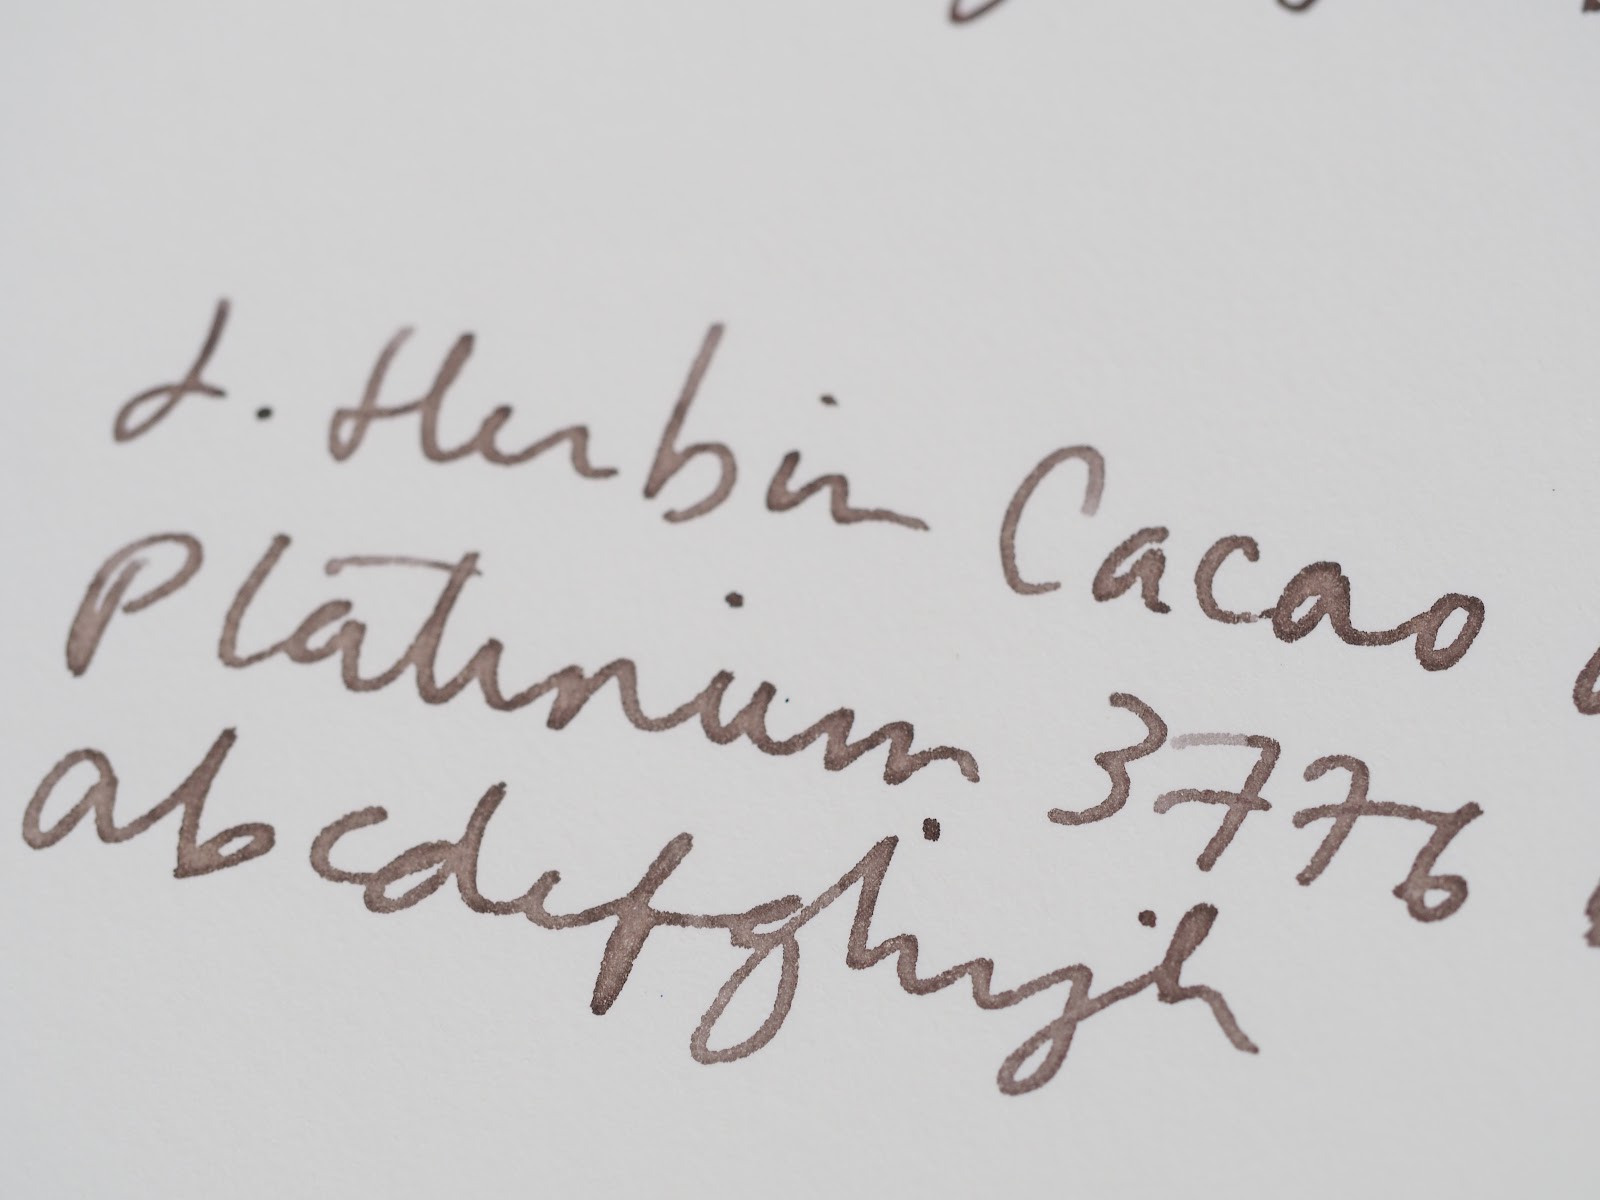 J. Herbin Cacao
Platinum 3776
abcdefghijk